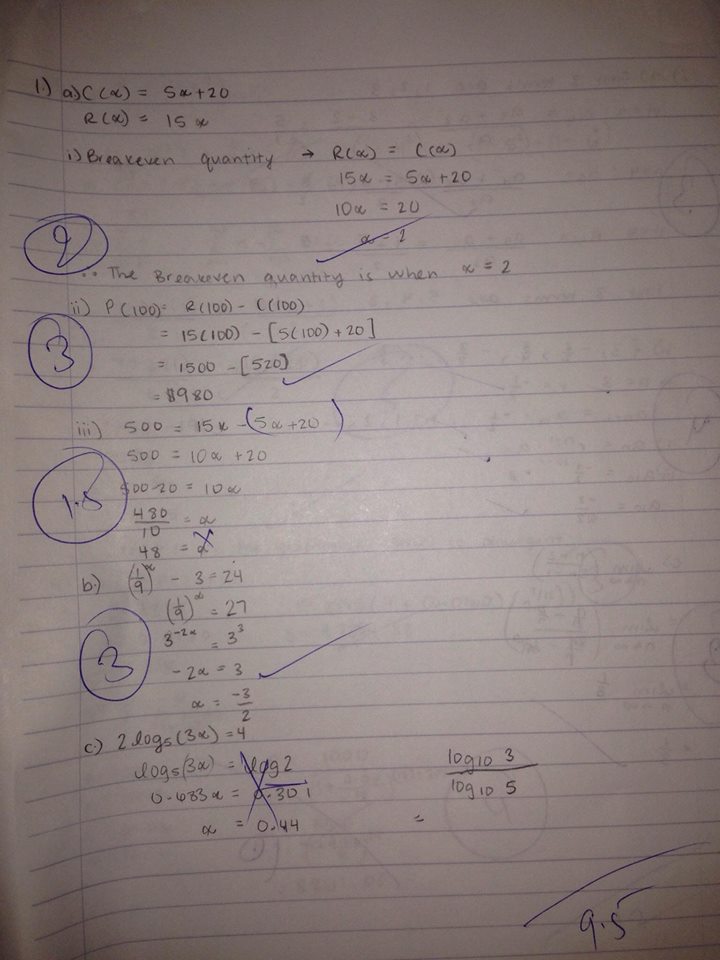 1.) a) C(x) = 5x+20
R(x) = 15x
i) Breakeven quantity → R(x) = C(x)
15x = 5x+20
10x = 20
x = 2
2
∴ The Breakeven quantity is when x = 2
ii) P(100) = R(100) - C(100)
= 15(100) - [5(100)+20]
3
= 1500 - [520]
= $980
iii) 500 = 15x - (5x+20)
500 = 10x + 20
1.5
500-20 = 10x
480/10 = x
48 = x
b.) (1/9)^x - 3 = 24
(1/9)^x = 27
3^-2x = 3^3
3
-2x = 3
x = -3/2
c.) 2log5(3x) = 4
log5(3x) = log2
log10 3 / log10 5
0.683x = 0.301
x = 0.44
=
9.5